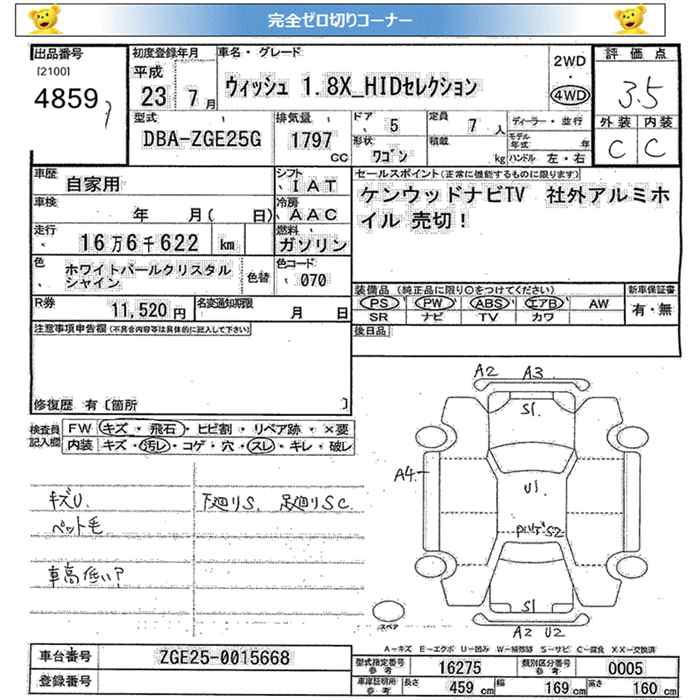 完全ゼロ切りコーナー
出品番号
[2100]
4859
初度登録年月
平成
23 7月
車名・グレード
ウィッシュ 1.8X_HIDセレクション
2WD
・
4WD
評価点
3.5
型式
DBA-ZGE25G
排気量
1797
cc
ドア
5
定員
7 人
ディーラー・並行
形状
ワゴン
積載
kg
モデル
年式 年
ハンドル 左・右
外装 内装
C C
車歴
自家用
シフト
IAT
セールスポイント(正常に機能するものに限ります)
ケンウッドナビTV 社外アルミホ
イル 売切!
車検
年 月( 日)
冷房
AAC
走行
16万6千622 km
燃料
ガソリン
色
ホワイトパールクリスタル
シャイン
色替
色コード
070
装備品(純正品に限り○をつけてください)
PS PW ABS エアB AW
SR ナビ TV カワ
新車保証書
有・無
R券
11,520円
名変通知期限
月 日
後日品
注意事項申告欄(不具合内容等は具体的に記入して下さい)
修復歴 有〔箇所 〕
検査員
記入欄
FW キズ・飛石・ヒビ割・リペア跡・×要
内装 キズ・汚レ・コゲ・穴・スレ・キレ・破レ
キズU. 下廻りS. 足廻りSC.
ペット毛
車高低い?
A2 A3.
S1.
A4.
U1
S2
S1
A2 U2
スペア
A-キズ E-エクボ U-凹み W-補修跡 S-サビ C-腐食 XX-交換済
車台番号
ZGE25-0015668
登録番号
型式指定番号
参考
16275
類別区分番号
参考
0005
車庫証明用
参考
長さ
459 cm
幅
169 cm
高さ
160 cm